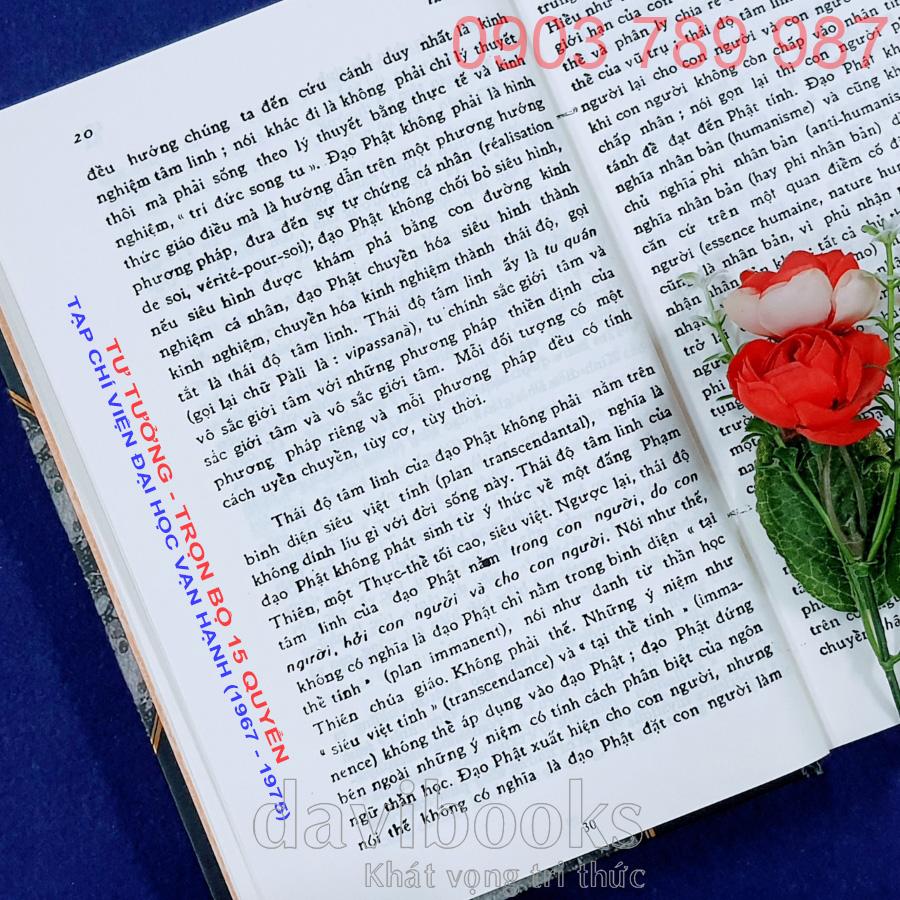 0903 789 987
20
đều hướng chúng ta đến cứu cánh duy nhất là kinh
nghiệm tâm linh ; nói khác đi là không phải chỉ lý thuyết
thôi mà phải sống theo lý thuyết bằng thực tế và kinh
nghiệm, « trí đức song tu ». Đạo Phật không phải là hình
thức giáo điều mà là hướng dẫn trên một phương hướng
phương pháp, đưa đến sự tự chứng cá nhân (réalisation
de soi, vérité-pour-soi); đạo Phật không chối bỏ siêu hình,
nếu siêu hình được khám phá bằng con đường kinh
nghiệm cá nhân, đạo Phật chuyển hóa siêu hình thành
kinh nghiệm, chuyển hóa kinh nghiệm thành thái độ, gọi
tắt là thái độ tâm linh. Thái độ tâm linh ấy là tu quán
(gọi lại chữ Pàli là : vipassanà), tu chỉnh sắc giới tâm và
vô sắc giới tâm với những phương pháp thiền định của
sắc giới tâm và vô sắc giới tâm. Mỗi đối tượng có một
phương pháp riêng và mỗi phương pháp đều có tính
cách uyển chuyển, tùy cơ, tùy thời.
Thái độ tâm linh của đạo Phật không phải nằm trên
bình diện siêu việt tính (plan transcendantal), nghĩa là
không dính líu gì với đời sống này. Thái độ tâm linh của
đạo Phật không phát sinh từ ý thức về một đấng Phạm
Thiên, một Thực-thể tối cao, siêu việt. Ngược lại, thái độ
tâm linh của đạo Phật nằm trong con người, do con
người, bởi con người và cho con người. Nói như thế,
không có nghĩa là đạo Phật chỉ nằm trong bình diện « tại
thể tính » (plan immanent), nói như danh từ thần học
Thiên chúa giáo. Không phải thế. Những ý niệm như
« siêu việt tính » (transcendance) và « tại thể tính » (imma-
nence) không thể áp dụng vào đạo Phật ; đạo Phật đứng
bên ngoài những ý niệm có tính cách phân biệt của ngôn
ngữ thần học. Đạo Phật xuất hiện cho con người, nhưng
nói thế không có nghĩa là đạo Phật đặt con người làm
30
Hiểu như
giới hạn của con
thể và phân ly chia rẽ
thể của vũ trụ ; thái độ tâm linh
người lại cho con người và con người
khi con người không còn chấp vào nhân tính
chấp nhân ; nói gọn lại thì con người
tánh để đạt đến Phật tính. Đạo Phật
nghĩa nhân bản (humanisme) và cũng
chủ nghĩa phi nhân bản (anti-humanis
nghĩa nhân bản (hay phi nhân bản)
căn cứ trên một quan điểm cố
người (essence humaine, nature
là nhân bản, vì phủ nhận
TƯ TƯỞNG - TRỌN BỘ 15 QUYỂN
TẠP CHÍ VIỆN ĐẠI HỌC VẠN HẠNH (1967 - 1975)
davibooks
Khát vọng tri thức